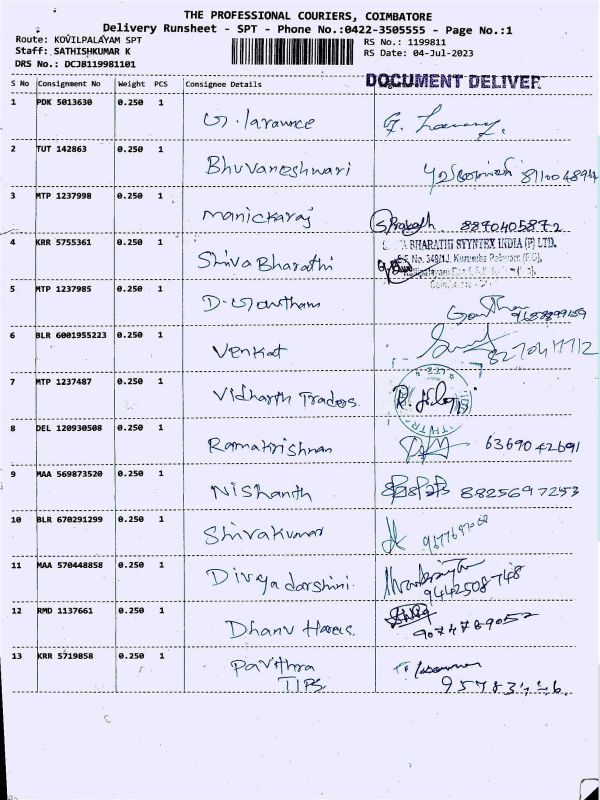 THE PROFESSIONAL COURIERS, COIMBATORE
Delivery Runsheet - SPT - Phone No.:0422-3505555 - Page No.:1
Route: KOVILPALAYAM SPT
Staff: SATHISHKUMAR K
DRS No.: DCJ8119981101
RS No.: 1199811
RS Date: 04-Jul-2023
S No Consignment No Weight PCS Consignee Details
DOCUMENT DELIVER
1 PDK 5013630 0.250 1
2 TUT 142863 0.250 1 Bhuvaneshwari 8110048944
3 MTP 1237998 0.250 1 Manickaraj S.Prakash 8870405872
4 KRR 5755361 0.250 1 Shiva Bharathi
BHARATHI SYYNTEX INDIA (P) LTD.
5 MTP 1237985 0.250 1 D. Gowtham 9688899159
6 BLR 6001955223 0.250 1 Venkat
7 MTP 1237487 0.250 1 Vidharth Traders
8 DEL 120930508 0.250 1 Ramakrishnan 6369042691
9 MAA 569873520 0.250 1 Nishanth 8825697253
10 BLR 670291299 0.250 1 Shivakumar
11 MAA 570448858 0.250 1 Divyadarshini 9442508748
12 RMD 1137661 0.250 1 Dhanv 9074789052
13 KRR 5719858 0.250 1 Pavithra
TIPS